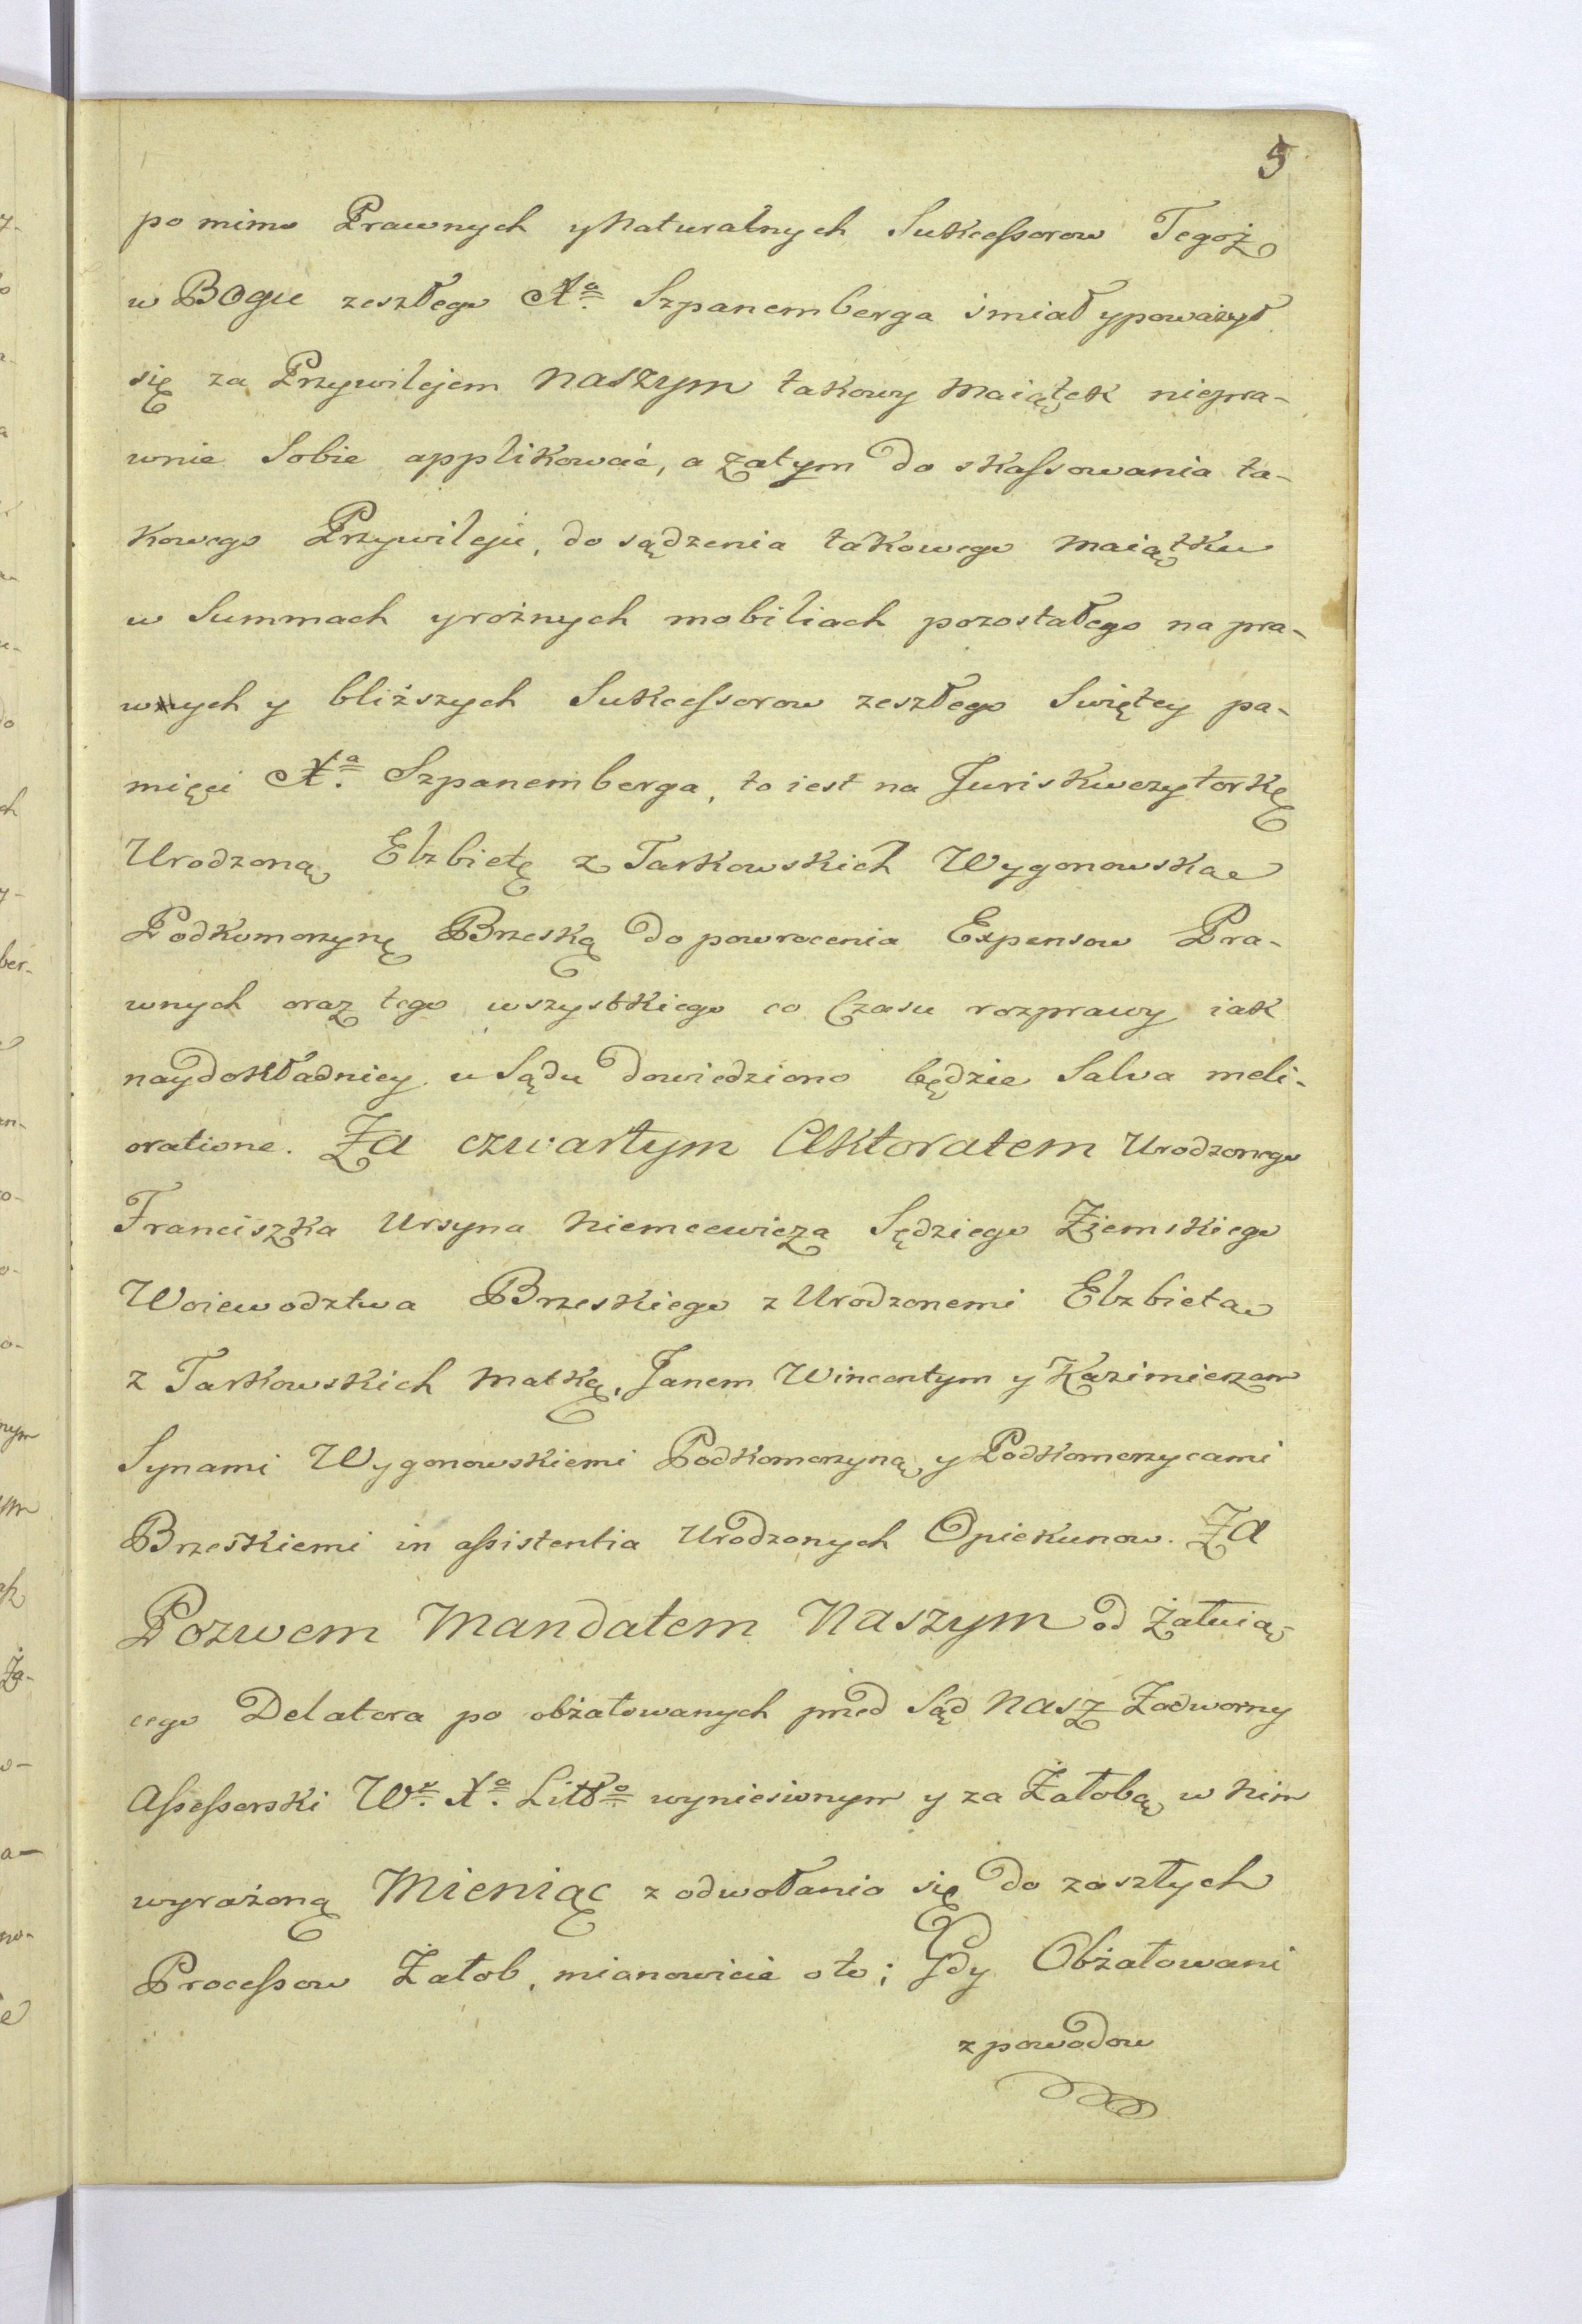 5
po mimo Prawnych y Naturalnych Sukcessorow Tegoż
w Bogu zeszłego Xa. Szpanemberga śmiał y poważył
się za Przywilejem Naszym takowy Maiątek niepra-
wnie Sobie applikować, a zatym do skassowania ta-
kowego Przywileju, do sądzenia takowego Maiątku
w Summach y rożnych mobiliach pozostałego na pra-
wnych y bliższych Sukcessorow zeszłego Swiętey pa-
mięci Xa. Szpanemberga, to iest na Juriskwezytorkę
Urodzoną Elzbietę z Tarkowskich Wygonowską
Podkomorzynę Brzeską do powrocenia Expensow Pra-
wnych oraz tego wszystkiego co Czasu rozprawy iak
naydokładniey u Sądu dowiedziono będzie Salva meli-
oratione. Za czwartym Aktoratem Urodzonego
Franciszka Ursyna Niemcewicza Sędziego Ziemskiego
Woiewodztwa Brzeskiego z Urodzonemi Elzbietą
z Tarkowskich Matką, Janem Wincentym y Kazimierzem
Synami Wygonowskiemi Podkomorzyną y Podkomorzycami
Brzeskiemi in assistentia Urodzonych Opiekunow. Za
Pozwem Mandatem Naszym od Żałuią-
cego Delatora po obżałowanych przed Sąd Nasz Zadworny
Assessorski Wo. Xa. Litto. wyniesionym y za Żałobą w nim
wyrażoną Mieniąc z odwołania się do zaszłych
Processow Żałob, mianowicie oto; Gdy Obżałowani
z powodow